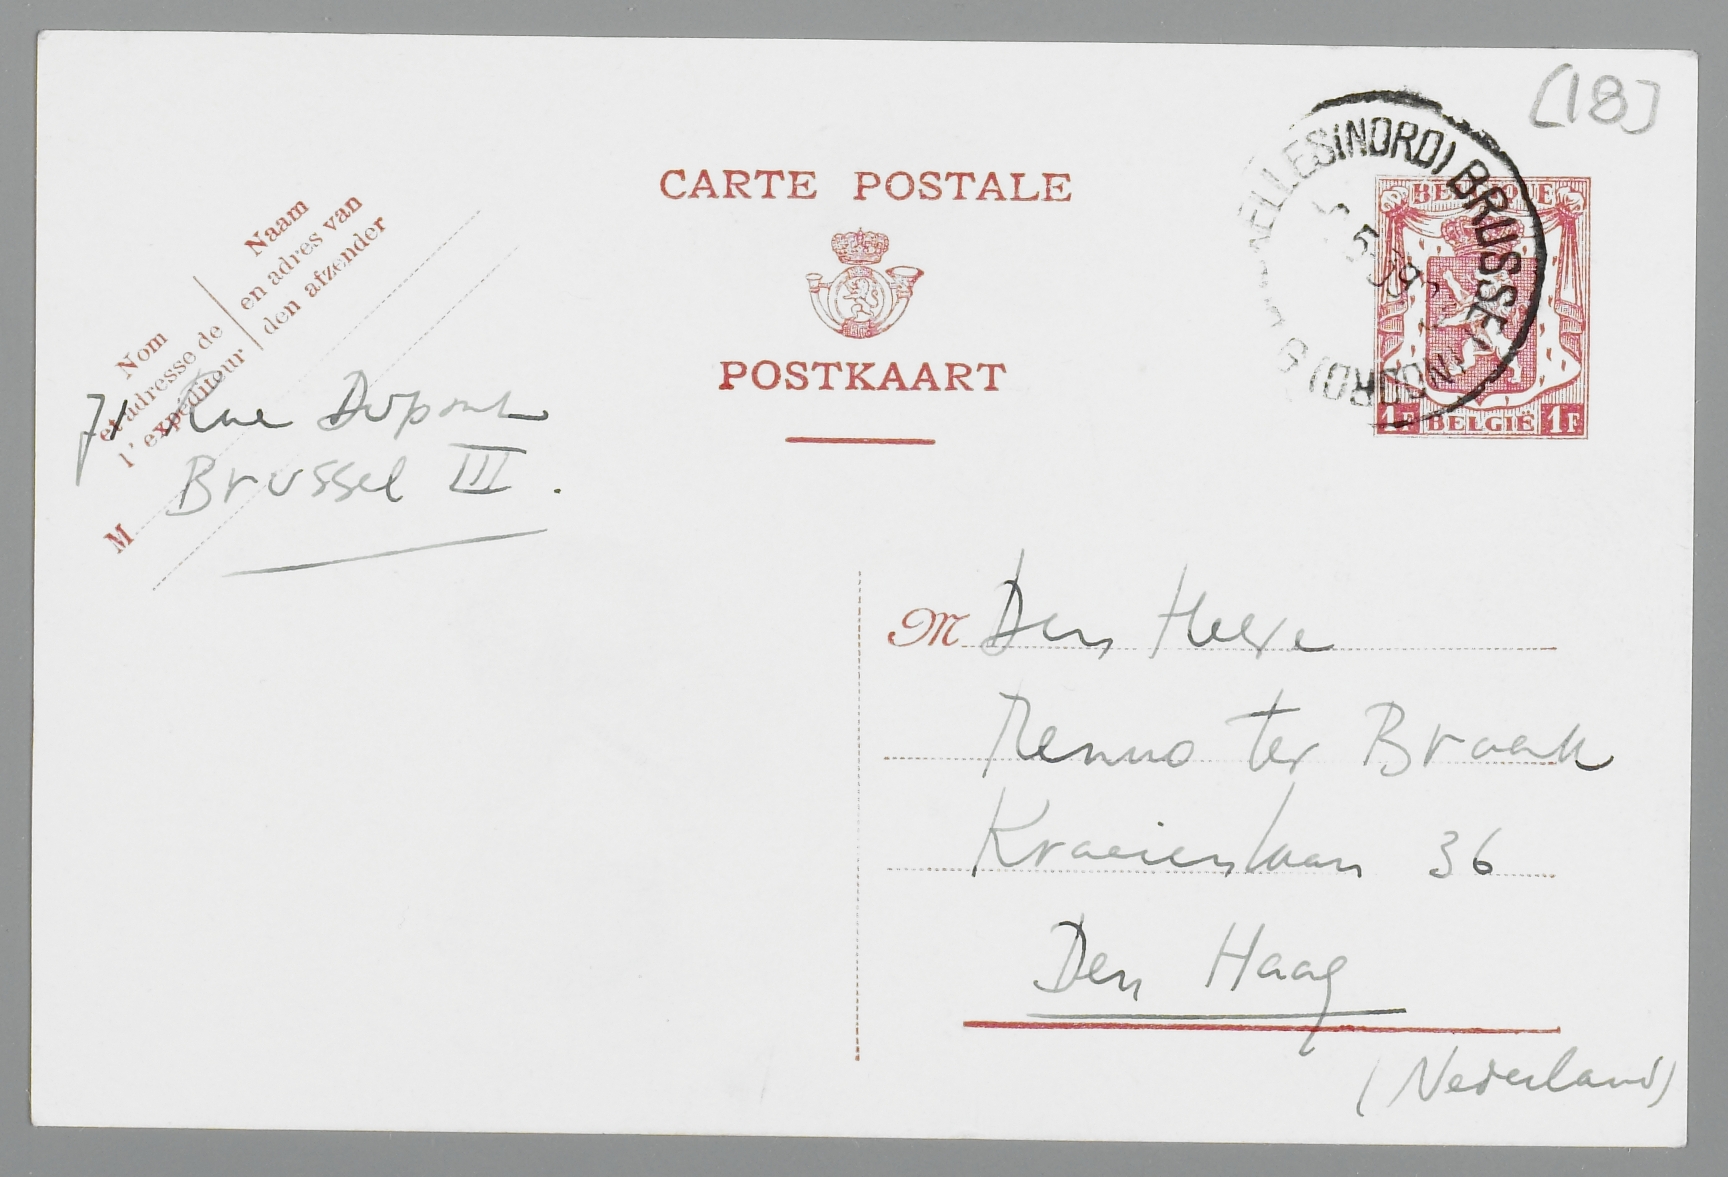 [18]
CARTE POSTALE
POSTKAART
Naam
en adres van
den afzender
Nom
et adresse de
l'expéditeur
M
71 Rue Dupont
Brussel III.
BRUXELLES(NORD) BRUSSEL(NOORD)
BELGIQUE
1F BELGIË 1F
M Den Heere
Menno ter Braak
Kraaienlaan 36
Den Haag
(Nederland)